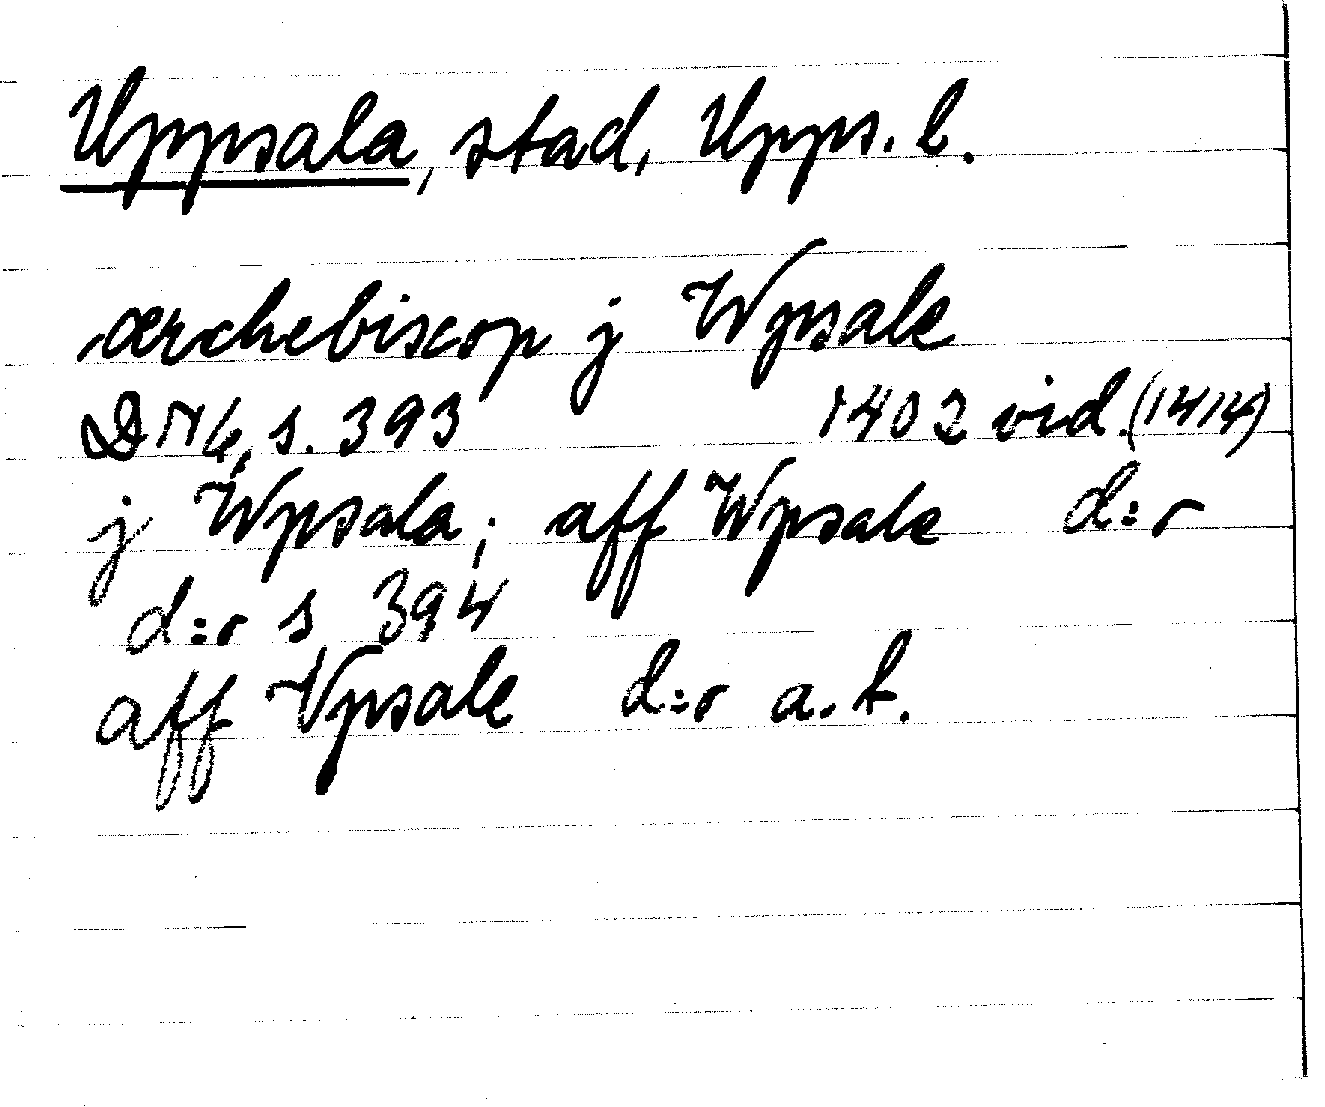 Uppsala, stad, Upps. l.
ærchebiscop j Wpsale
DN 16, s. 393 1402 vid. (1414)
j Wpsala; aff Wpsale d:o
d:o s 394
aff Vpsale d:o a. t.